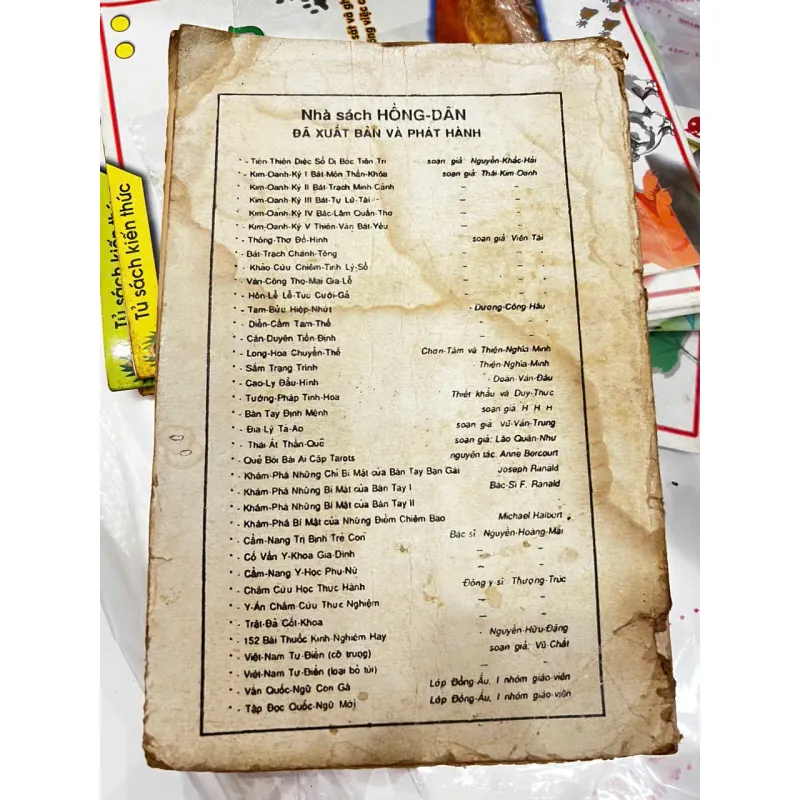 sát và gh
ộng việc c
Tủ sách kiến thức
Tủ sách kiến thức
Nhà sách HỒNG-DÂN
ĐÃ XUẤT BẢN VÀ PHÁT HÀNH
* - Tiên-Thiên Diệc Số Di Bóc Tiên Tri soạn giả: Nguyễn-Khắc-Hải
* - Kim-Oanh-Ký I Bát-Môn Thần-Khóa soạn giả: Thái-Kim-Oanh
Kim-Oanh-Ký II Bát-Trạch Minh-Cảnh – –
Kim-Oanh-Ký III Bát-Tự Lữ-Tài – –
Kim-Oanh-Ký IV Bác-Lãm Quần-Thơ – –
* - Kim-Oanh-Ký V Thiên-Văn Bát-Yếu – –
* - Thông-Thơ Đồ-Hình soạn giả: Viên Tài
* - Bát-Trạch Chánh-Tông – –
* - Khảo Cứu Chiêm-Tinh Lý-Số – –
* - Văn-Công Thọ-Mai Gia-Lễ – –
* - Hôn-Lễ Lễ-Tục Cưới-Gả – –
* - Tam-Bửu Hiệp-Nhứt - Dương-Công-Hầu
* - Diễn-Cầm Tam-Thế – –
* - Căn-Duyên Tiền-Định – –
* - Long-Hoa Chuyển-Thế Chơn-Tâm và Thiện-Nghĩa-Minh
* - Sấm Trạng Trình - Thiện-Nghĩa-Minh
* - Cao-Ly Đầu-Hình - Doãn-Văn-Đâu
* - Tướng-Pháp Tinh-Hoa Thiết khẩu và Duy-Thức
* - Bàn Tay Định Mệnh soạn giả: H H H
* - Địa-Lý Tả-Ao soạn giả: Vũ-Văn-Trung
* - Thái Ất Thần-Quẻ soạn giả: Lão Quân-Như
* - Quẻ Bói Bài Ai Cập Tarots nguyên tác: Anne Bercourt
* - Khám-Phá Những Chỉ Bí Mật của Bàn Tay Bạn Gái Joseph Ranald
* - Khám-Phá Những Bí Mật của Bàn Tay I Bác-Sĩ F. Ranald
* - Khám-Phá Những Bí Mật của Bàn Tay II
* - Khám-Phá Bí Mật của Những Điềm Chiêm Bao Michael Halbert
* - Cẩm-Nang Trị Bịnh Trẻ Con Bác sĩ Nguyễn-Hoàng-Mãi
* - Cố Vấn Y-Khoa Gia-Đình – –
* - Cẩm-Nang Y-Học Phụ-Nữ – –
* - Châm Cứu Học Thực Hành Đông y-sĩ Thượng-Trúc
* - Y-Án Châm-Cứu Thực Nghiệm – –
* - Trật-Đả Cốt-Khoa – –
* - 152 Bài Thuốc Kinh-Nghiệm Hay - Nguyễn-Hữu-Đặng
* - Việt-Nam Tự-Điển (cỡ trung) soạn giả: Vũ-Chất
* - Việt-Nam Tự-Điển (loại bỏ túi) – –
* - Vần Quốc-Ngữ Con Gà Lớp Đồng-Ấu, 1 nhóm giáo-viên
* - Tập Đọc Quốc-Ngữ Mới Lớp Đồng-Ấu, 1 nhóm giáo-viên